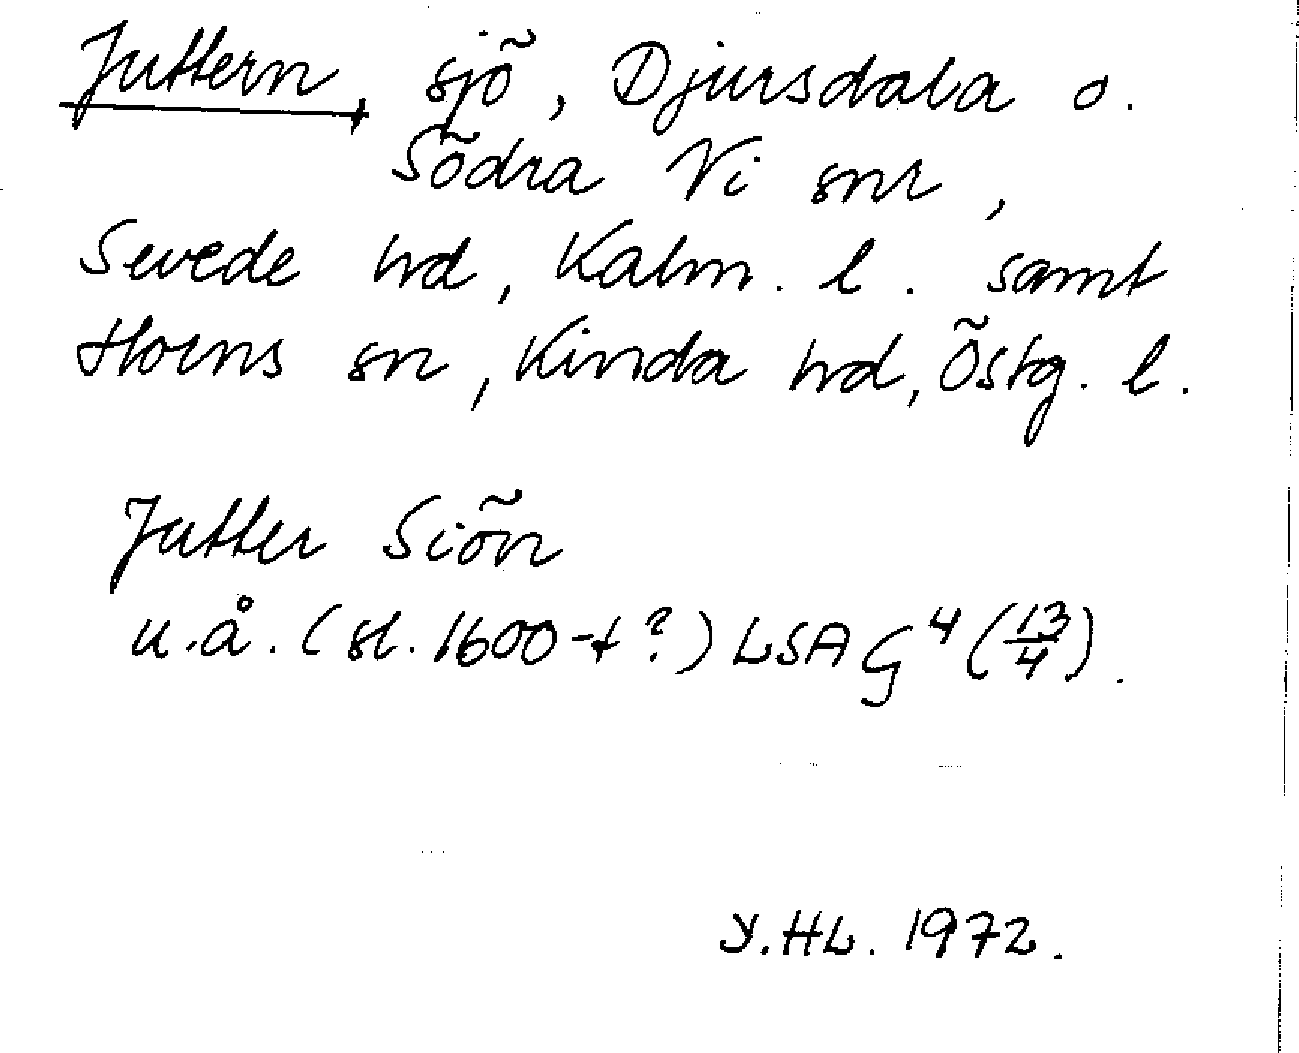 Juttern, sjö, Djursdala o.
Södra Vi snr,
Sevede hd, Kalm. l. samt
Horns sn, Kinda hd, Östg. l.
Jutter Siön
u.å. (sl. 1600-t?) LSA G⁴ (13/4).
Y.HL. 1972.